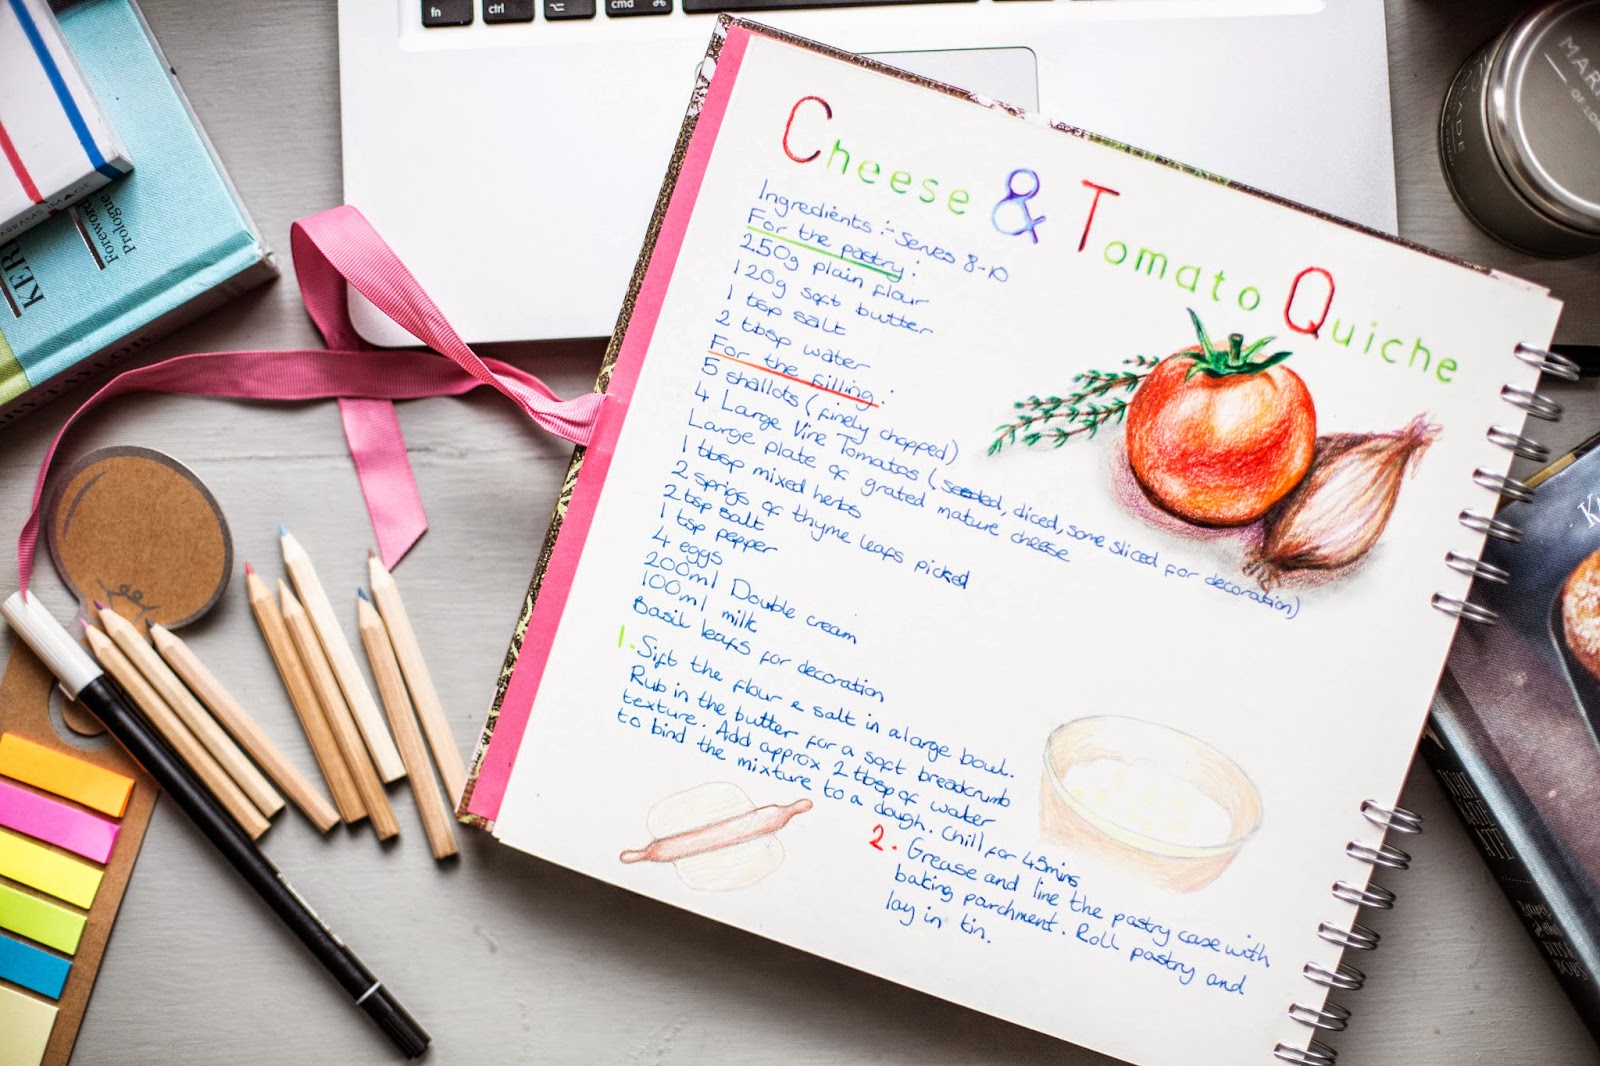 fn
ctrl
cmd ⌘
Cheese & Tomato Quiche
Ingredients :- Serves 8-10
For the pastry :
250g plain flour
120g soft butter
1 tsp salt
2 tbsp water
For the filling :
5 shallots (finely chopped)
4 Large Vine Tomatos (seeded, diced, some sliced for decoration)
Large plate of grated mature cheese
1 tbsp mixed herbs
2 sprigs of thyme leafs picked
2 tsp salt
1 tsp pepper
4 eggs
200ml Double cream
100ml milk
Basil leafs for decoration
1. Sift the flour & salt in a large bowl.
Rub in the butter for a soft breadcrumb
texture. Add approx 2 tbsp of water
to bind the mixture to a dough. Chill for 45mins
2. Grease and line the pastry case with
baking parchment. Roll pastry and
lay in tin.
ABRAMS IMAGE
Foreword
Prologue
TAYLOR
OF LON